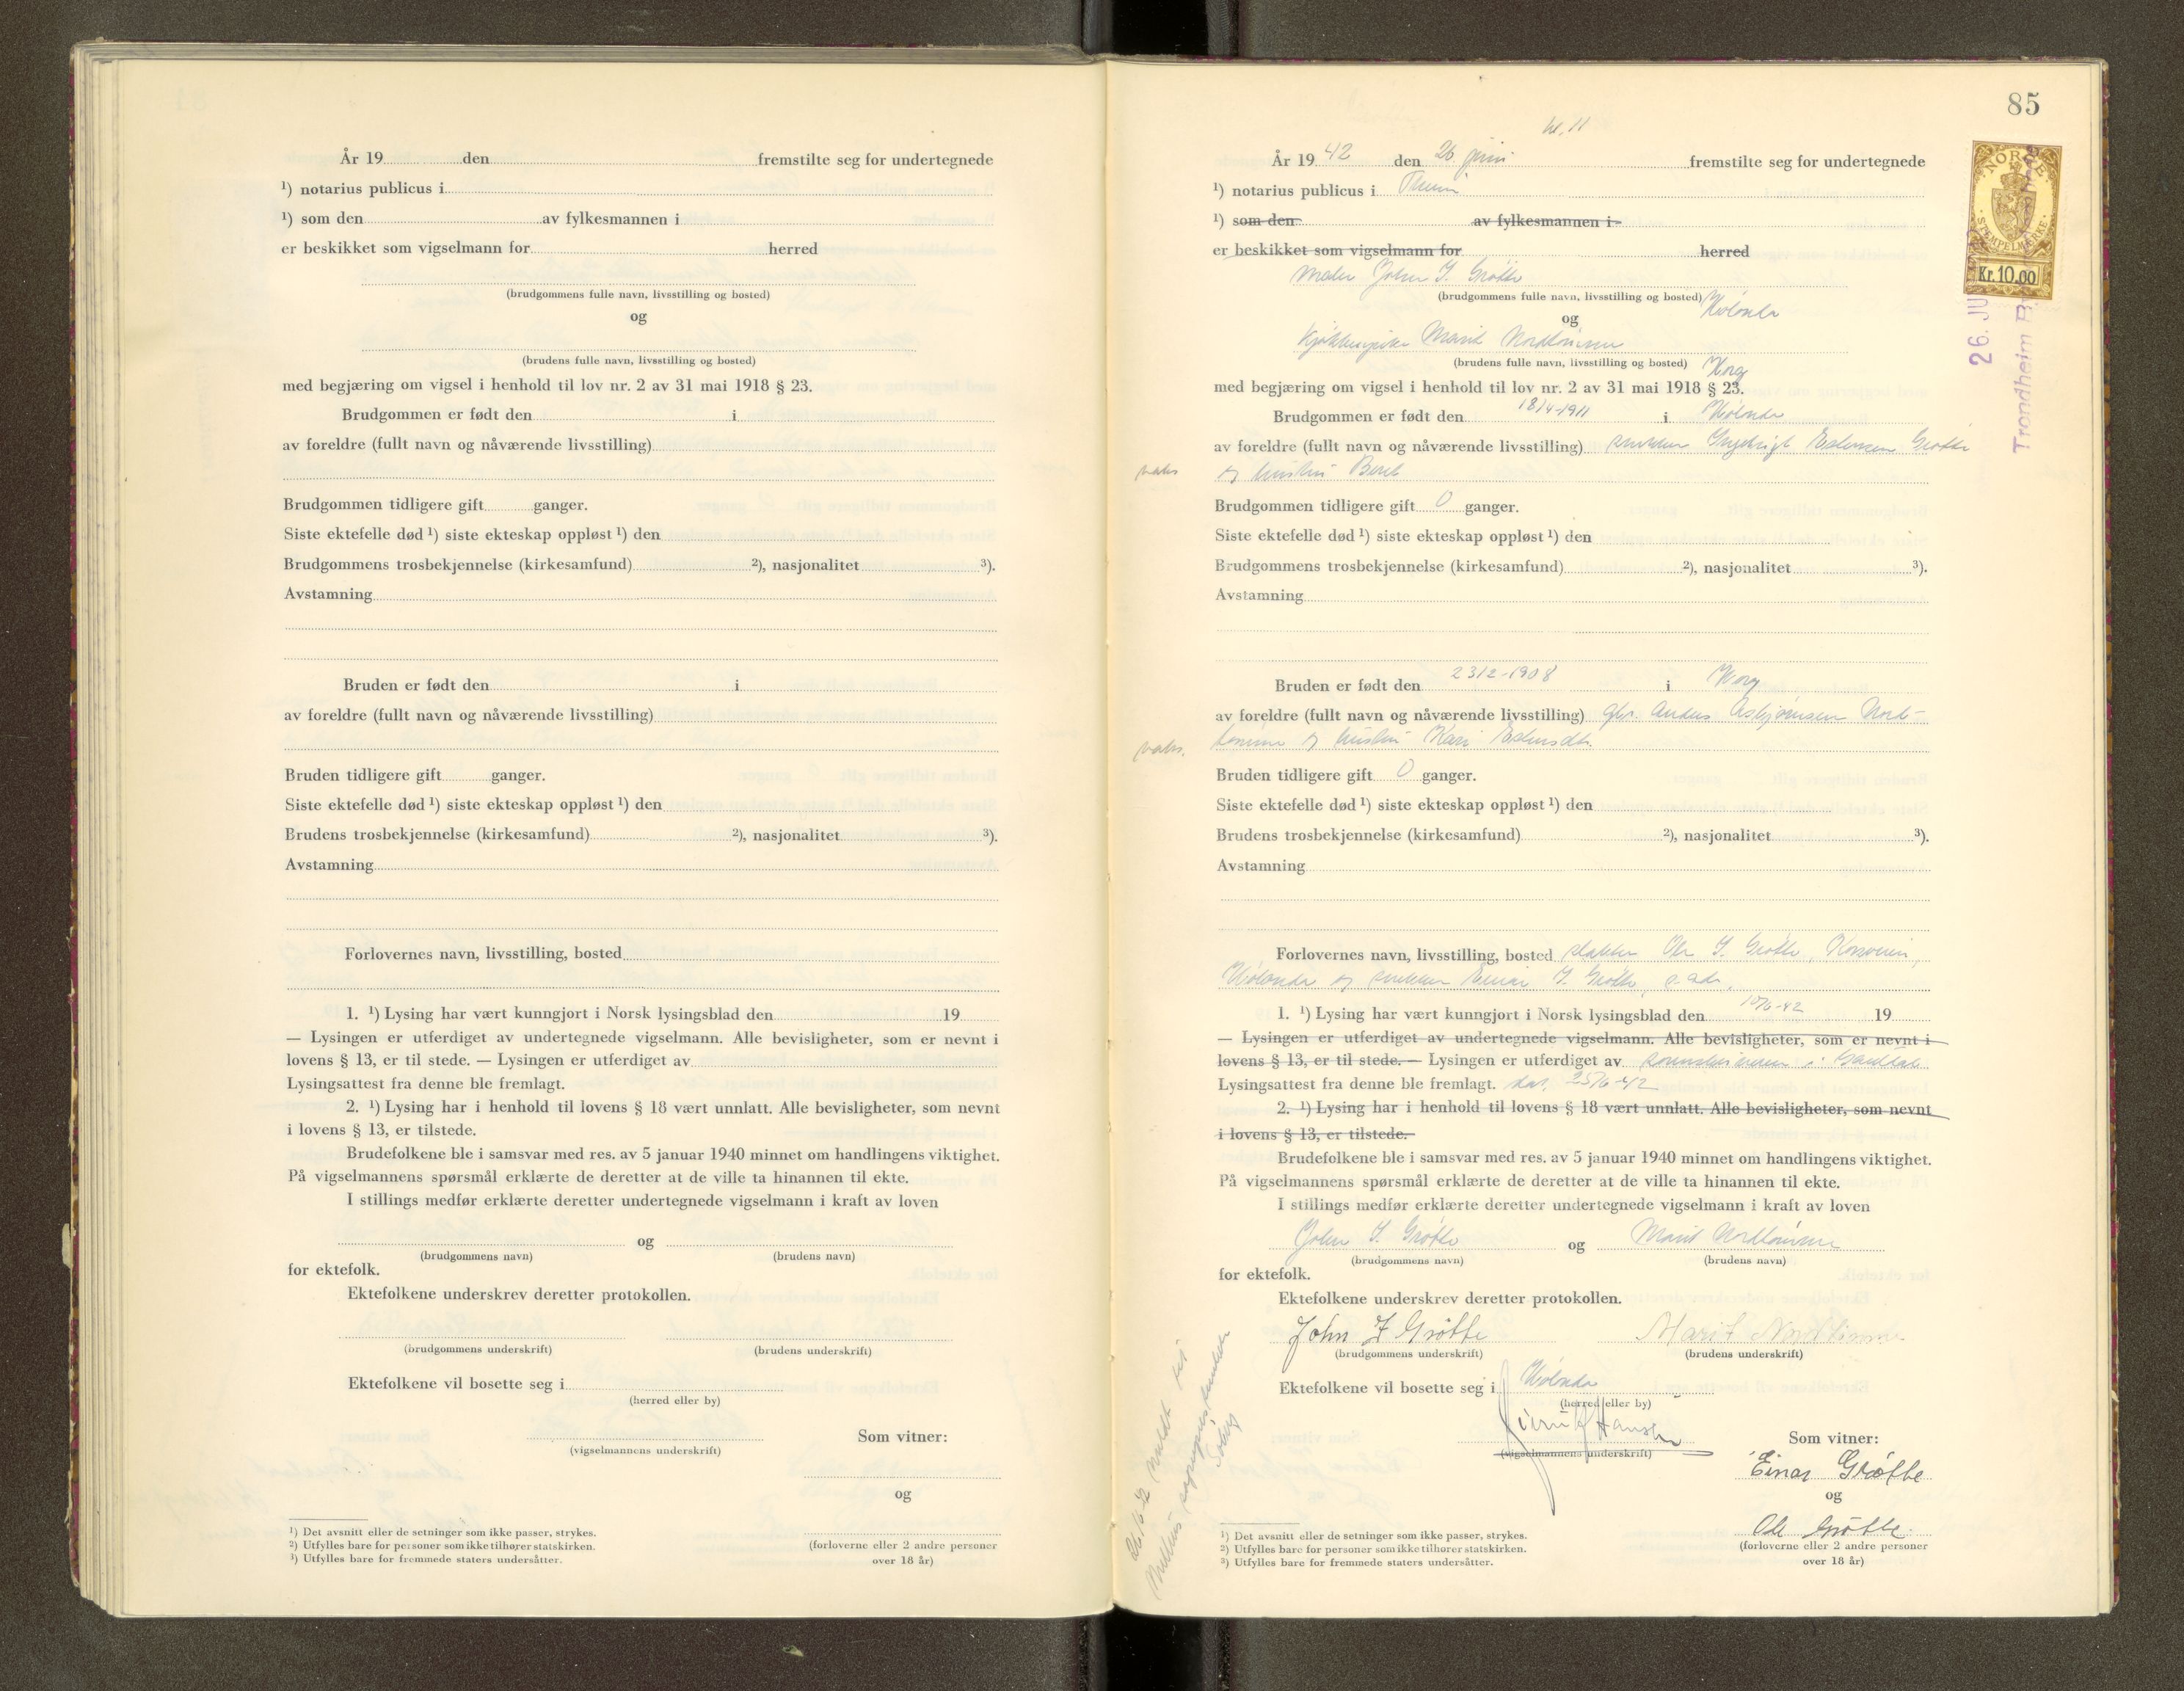 År 19 den fremstilte seg for undertegnede
¹) notarius publicus i
¹) som den av fylkesmannen i
er beskikket som vigselmann for herred
(brudgommens fulle navn, livsstilling og bosted)
og
(brudens fulle navn, livsstilling og bosted)
med begjæring om vigsel i henhold til lov nr. 2 av 31 mai 1918 § 23.
Brudgommen er født den i
av foreldre (fullt navn og nåværende livsstilling)
Brudgommen tidligere gift ganger.
Siste ektefelle død ¹) siste ekteskap oppløst ¹) den
Brudgommens trosbekjennelse (kirkesamfund) ²), nasjonalitet ³).
Avstamning
Bruden er født den i
av foreldre (fullt navn og nåværende livsstilling)
Bruden tidligere gift ganger.
Siste ektefelle død ¹) siste ekteskap oppløst ¹) den
Brudens trosbekjennelse (kirkesamfund) ²), nasjonalitet ³).
Avstamning
Forlovernes navn, livsstilling, bosted
1. ¹) Lysing har vært kunngjort i Norsk lysingsblad den 19
— Lysingen er utferdiget av undertegnede vigselmann. Alle bevisligheter, som er nevnt i
lovens § 13, er til stede. — Lysingen er utferdiget av
Lysingsattest fra denne ble fremlagt.
2. ¹) Lysing har i henhold til lovens § 18 vært unnlatt. Alle bevisligheter, som nevnt
i lovens § 13, er tilstede.
Brudefolkene ble i samsvar med res. av 5 januar 1940 minnet om handlingens viktighet.
På vigselmannens spørsmål erklærte de deretter at de ville ta hinannen til ekte.
I stillings medfør erklærte deretter undertegnede vigselmann i kraft av loven
og
(brudgommens navn) (brudens navn)
for ektefolk.
Ektefolkene underskrev deretter protokollen.
(brudgommens underskrift) (brudens underskrift)
Ektefolkene vil bosette seg i
(herred eller by)
Som vitner:
(vigselmannens underskrift)
og
(forloverne eller 2 andre personer
over 18 år)
¹) Det avsnitt eller de setninger som ikke passer, strykes.
²) Utfylles bare for personer som ikke tilhører statskirken.
³) Utfylles bare for fremmede staters undersåtter.
85
kl. 11
År 19 42 den 26 juni fremstilte seg for undertegnede
¹) notarius publicus i
¹) som den av fylkesmannen i
er beskikket som vigselmann for herred
maler John I. Grøtte
(brudgommens fulle navn, livsstilling og bosted) Hølonda
og
kjøkkenpike Marit Nordtømme
(brudens fulle navn, livsstilling og bosted) Horg
med begjæring om vigsel i henhold til lov nr. 2 av 31 mai 1918 § 23.
Brudgommen er født den 18/4-1911 i Hølonda
av foreldre (fullt navn og nåværende livsstilling) snekker Ingebrigt Estensen Grøtte
og hustru Beret
Brudgommen tidligere gift 0 ganger.
Siste ektefelle død ¹) siste ekteskap oppløst ¹) den
Brudgommens trosbekjennelse (kirkesamfund) ²), nasjonalitet ³).
Avstamning
Bruden er født den 23/2-1908 i Horg
av foreldre (fullt navn og nåværende livsstilling) gbr. Anders Asbjørnsen Nord-
tømme og hustru Kari Estensdtr.
Bruden tidligere gift 0 ganger.
Siste ektefelle død ¹) siste ekteskap oppløst ¹) den
Brudens trosbekjennelse (kirkesamfund) ²), nasjonalitet ³).
Avstamning
Forlovernes navn, livsstilling, bosted Ole I. Grøtte,
Hølonda og snekker Einar I. Grøtte, s. adr.
1. ¹) Lysing har vært kunngjort i Norsk lysingsblad den 10/6-42 19
— Lysingen er utferdiget av undertegnede vigselmann. Alle bevisligheter, som er nevnt i
lovens § 13, er til stede. — Lysingen er utferdiget av sorenskriveren i Gauldal
Lysingsattest fra denne ble fremlagt. dat. 25/6-42
2. ¹) Lysing har i henhold til lovens § 18 vært unnlatt. Alle bevisligheter, som nevnt
i lovens § 13, er tilstede.
Brudefolkene ble i samsvar med res. av 5 januar 1940 minnet om handlingens viktighet.
På vigselmannens spørsmål erklærte de deretter at de ville ta hinannen til ekte.
I stillings medfør erklærte deretter undertegnede vigselmann i kraft av loven
John I. Grøtte og Marit Nordtømme
(brudgommens navn) (brudens navn)
for ektefolk.
Ektefolkene underskrev deretter protokollen.
John I Grøtte Marit Nordtømme
(brudgommens underskrift) (brudens underskrift)
Ektefolkene vil bosette seg i Hølonda
(herred eller by)
Hansen
Som vitner:
(vigselmannens underskrift)
Einar Grøtte
og
Ole Grøtte
(forloverne eller 2 andre personer
over 18 år)
¹) Det avsnitt eller de setninger som ikke passer, strykes.
²) Utfylles bare for personer som ikke tilhører statskirken.
³) Utfylles bare for fremmede staters undersåtter.
26/6-42 meldt til
NORGE
STEMPELMERKE
Kr. 10.00
26. JU
Trondheim